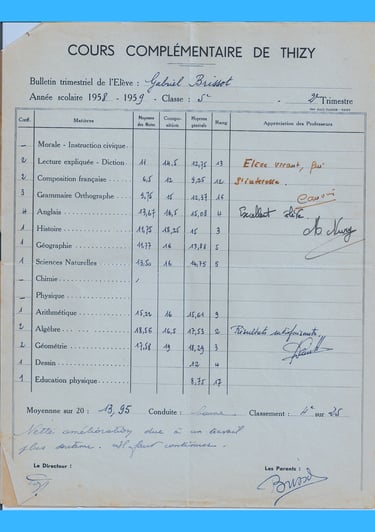 COURS COMPLÉMENTAIRE DE THIZY
Bulletin trimestriel de l'Elève : Gabriel Brissot
Année scolaire 1958 - 1959 - Classe : 5e 3e Trimestre
Coef. Matières Moyenne des Notes Compo- sition Moyenne générale Rang Appréciation des Professeurs
— Morale - Instruction civique
2 Lecture expliquée - Diction 11 14,5 12,75 13 Elève vivant, qui
2 Composition française 6,5 12 9,25 12 s'intéresse.
3 Grammaire Orthographe 9,75 15 12,37 16
4 Anglais 13,67 16,5 15,08 4 Excellent élève
1 Histoire 11,75 18,25 15 3
1 Géographie 11,77 16 13,88 5
1 Sciences Naturelles 13,50 16 14,75 5
— Chimie
— Physique
1 Arithmétique 15,24 16 15,61 9
2 Algèbre 18,56 16,5 17,53 2 Résultats satisfaisants
2 Géométrie 17,58 19 18,29 3
1 Dessin 12 4
1 Education physique 8,75 17
Moyenne sur 20 : 13,95 Conduite : bonne Classement : 4e sur 25
Nette amélioration due à un travail
plus soutenu. Il faut continuer.
Le Directeur : Les Parents :
Brissot